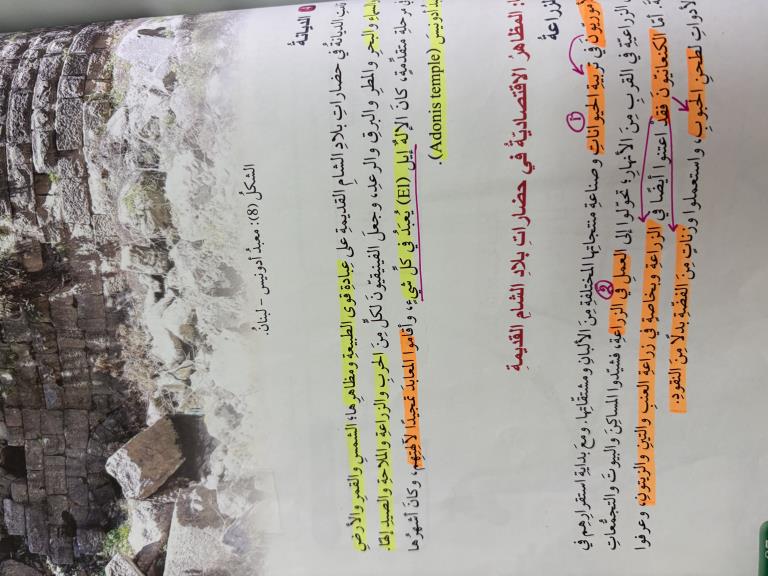 الشكل (8): معبدُ أدونيس - لبنانُ.
4 الديانةُ
الديانةُ في حضاراتِ بلادِ الشامِ القديمةِ على عبادةِ قوى الطبيعةِ ومظاهرِها؛ الشمسِ والقمرِ والأرضِ
والبحرِ والمطرِ والبرقِ والرعدِ، وجعلَ الفينيقيّونَ لكلٍّ مِنَ الحربِ والزراعةِ والملاحةِ والصيدِ إلهًا.
مرحلةٍ متقدّمةٍ، كانَ الإلهُ إيل (El) يُعبَدُ في كلِّ شيءٍ، وأقاموا المعابدَ تمجيدًا لآلهتِهم، وكانَ أشهرُها
أدونيس (Adonis temple).
المظاهرُ الاقتصاديّةُ في حضاراتِ بلادِ الشامِ القديمةِ
الزراعةُ
الأموريّونَ في تربيةِ الحيواناتِ وصناعةِ منتجاتِها المختلفةِ مِنَ الألبانِ ومشتقّاتِها. ومعَ بدايةِ استقرارِهم في
الزراعيّةِ في القربِ مِنَ الأنهارِ؛ تحوّلوا إلى العملِ في الزراعةِ، فشيّدوا المساكنَ والبيوتَ والتجمّعاتِ
أمّا الكنعانيّونَ فقد اعتنوا أيضًا في الزراعةِ وبخاصّةٍ في زراعةِ العنبِ والتينِ والزيتونِ، وعرفوا
الأدواتِ لطحنِ الحبوبِ، واستعملوا وزناتٍ مِنَ الفضّةِ بدلًا مِنَ النقودِ.